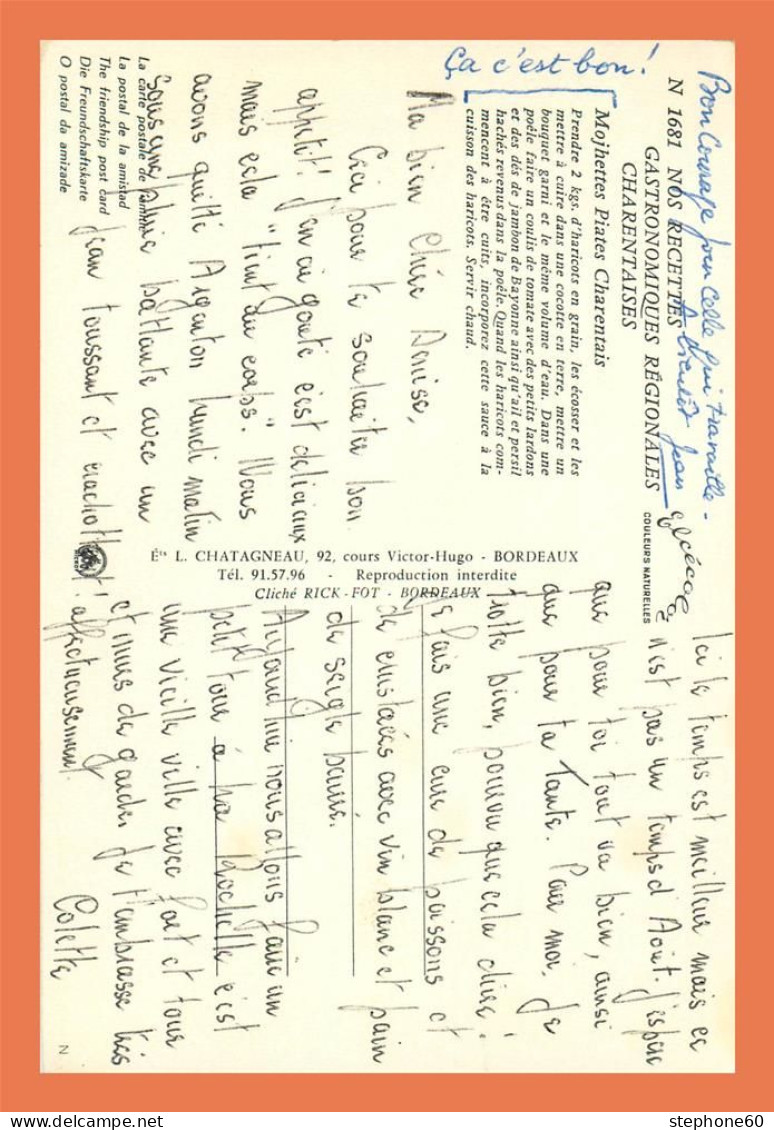 Ça c'est bon!
Bon Courage pour Celle qui travaille -
A bientôt Jean
N 1681 NOS RECETTES
GASTRONOMIQUES RÉGIONALES
CHARENTAISES
COULEURS NATURELLES
Mojhettes Piates Charentais
Prendre 2 kgs. d'haricots en grain, les écosser et les
mettre à cuire dans une cocotte en terre, mettre un
bouquet garni et le même volume d'eau. Dans une
poêle faire un coulis de tomate avec des petits lardons
et des dés de jambon de Bayonne ainsi qu'ail et persil
hachés revenus dans la poêle. Quand les haricots com-
mencent à être cuits, incorporez cette sauce à la
cuisson des haricots. Servir chaud.
Ma bien chère Denise,
Ceci pour te souhaiter bon
appetit! J'en ai gouté c'est délicieux
mais cela "tient au corps". Nous
avons quitté Argenton lundi matin
sous une pluie battante avec un
Jean toussant et crachottant!
La carte postale de l'amitié
La postal de la amistad
The friendship post card
Die Freundschaftskarte
O postal da amizade
Éts L. CHATAGNEAU, 92, cours Victor-Hugo - BORDEAUX
Tél. 91.57.96 - Reproduction interdite
Cliché RICK-FOT - BORDEAUX
Ici le temps est meilleur mais ce
n'est pas un temps d'Août. J'espère
que pour toi tout va bien, ainsi
que pour ta Tante. Pour moi, je
trotte bien, pourvu que cela dure!
Je fais une cure de poissons et
de crustacés avec vin blanc et pain
de seigle beurré.
Aujourd'hui nous allons faire un
petit tour à La Rochelle c'est
une vieille ville avec port et tour
et murs de garde. Je t'embrasse très
affectueusement.
Colette
N
stephone60